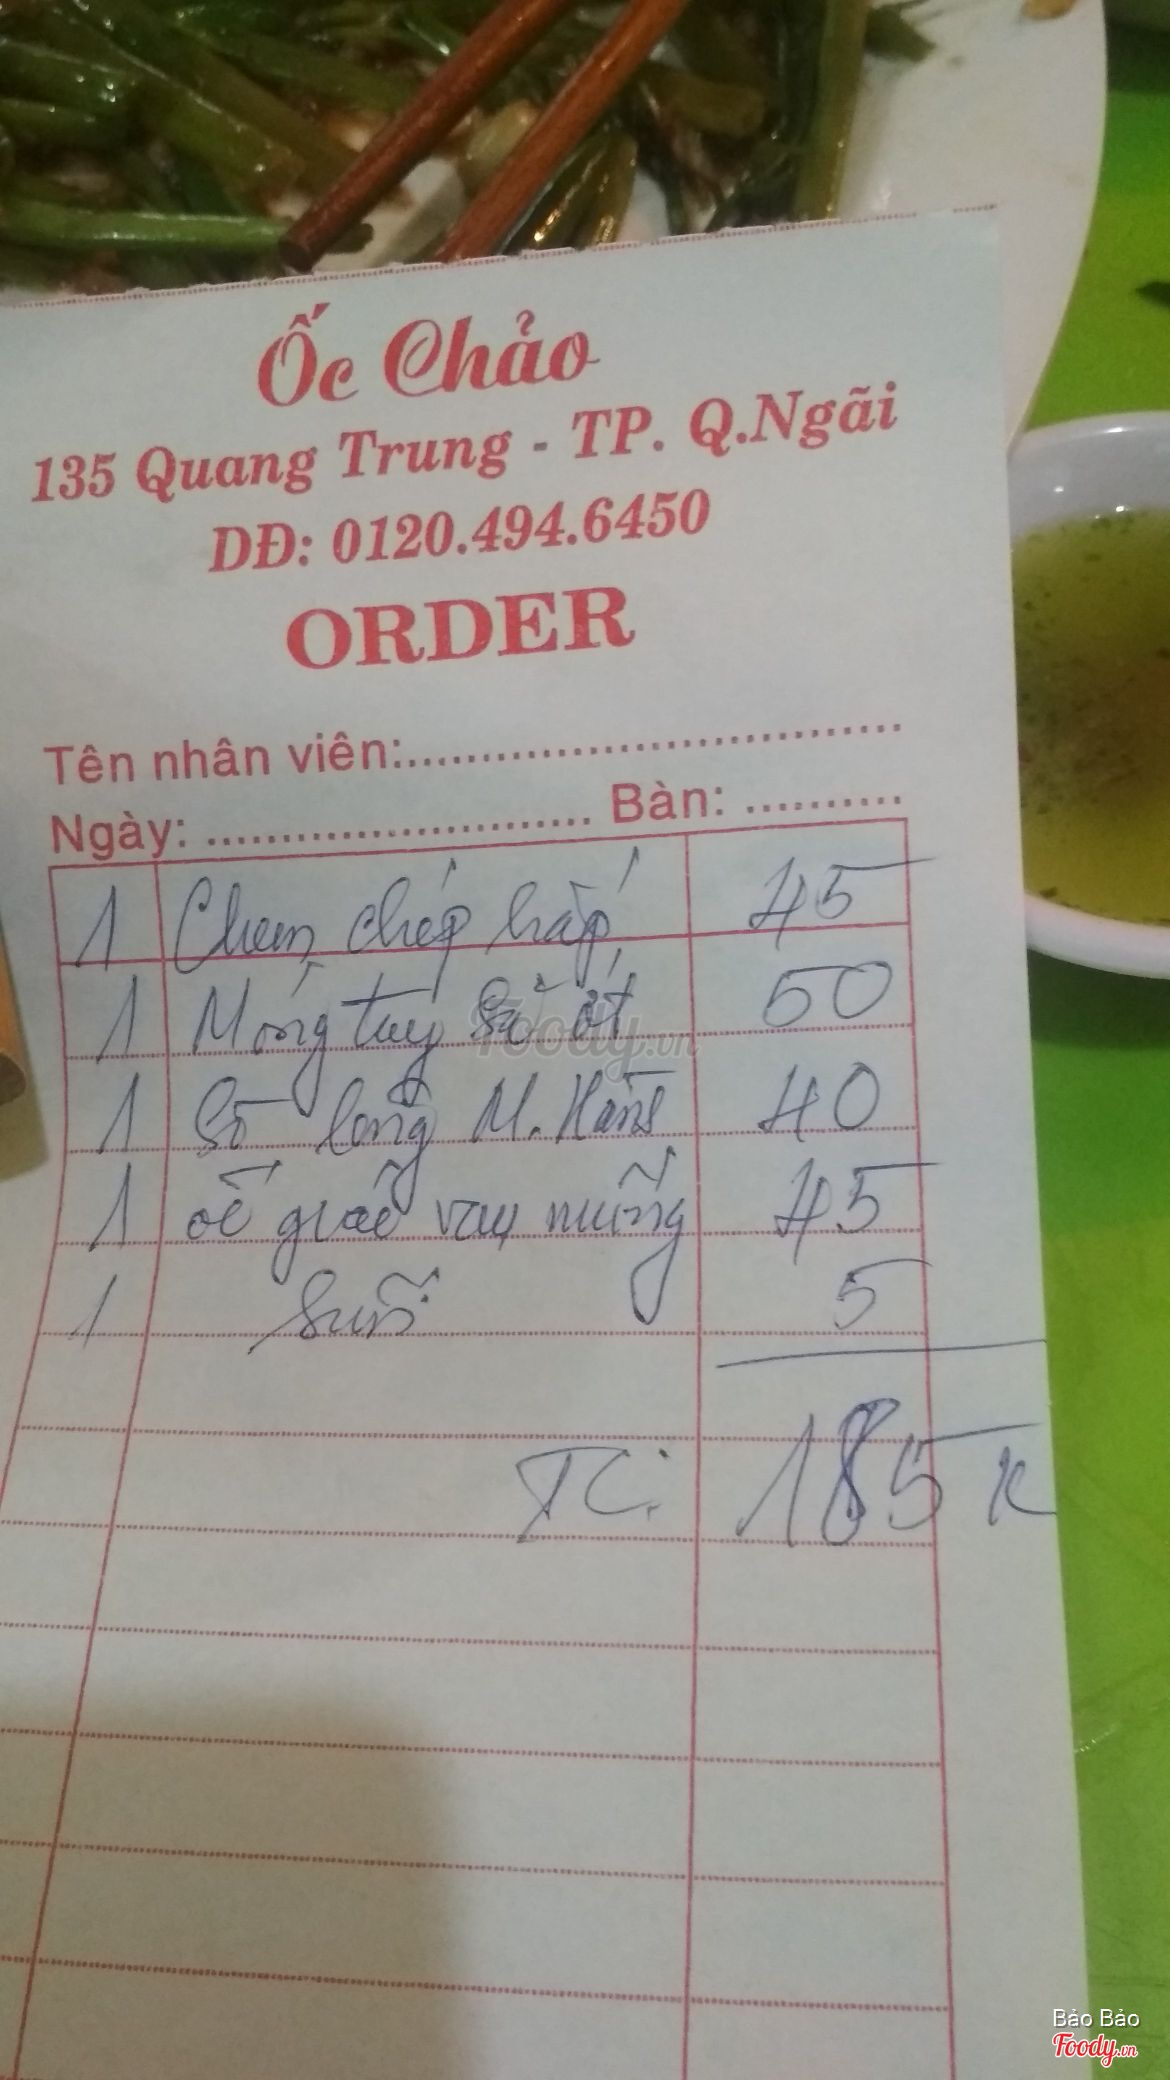 Ốc Chảo
135 Quang Trung - TP. Q.Ngãi
DĐ: 0120.494.6450
ORDER
Tên nhân viên:
Ngày: Bàn:
1 Chem chép hấp 45
1 Móng tay Sa ớt 50
1 Sò lông M. Hành 40
1 ốc giác rau muống 45
1 5
TC: 185 K
Foody.vn
Bảo Bảo
Foody.vn